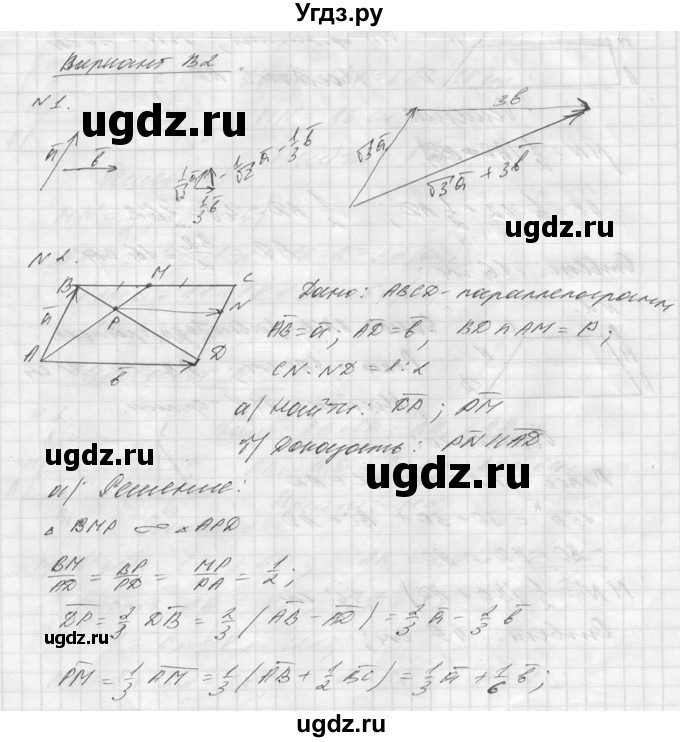 Угдз.ру
Вариант В2
N 1.
a̅
b̅
3b̅
√3 a̅
√3 a̅ + 3b̅
1/√2 a̅ - 1/3 b̅
1/3 b̅
ugdz.ru
N 2.
B M C
a̅ P N
A D
b̅
Дано: ABCD - параллелограмм
A̅B̅ = a̅; A̅D̅ = b̅; BD ∩ AM = P;
CN : ND = 1 : 2
а) Найти: D̅P̅; P̅M̅
б) Доказать: P̅N̅ || A̅D̅
ugdz.ru
ugdz.ru
ugdz.ru
а) Решение:
△ BMP ∽ △ APD
BM/AD = BP/PD = MP/PA = 1/2;
D̅P̅ = 2/3 D̅B̅ = 2/3 (A̅B̅ - A̅D̅) = 2/3 a̅ - 2/3 b̅
ugdz.ru
ugdz.ru
P̅M̅ = 1/3 A̅M̅ = 1/3 (A̅B̅ + 1/2 B̅C̅) = 1/3 a̅ + 1/6 b̅;
ugdz.ru